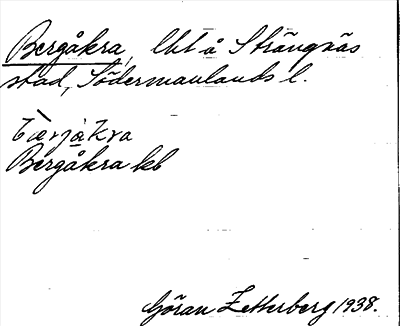 Bergåkra, lht å Strängnäs
stad, Södermanlands l.
bàrjåkra
Bergåkra kb
Göran Zetterberg 1938.